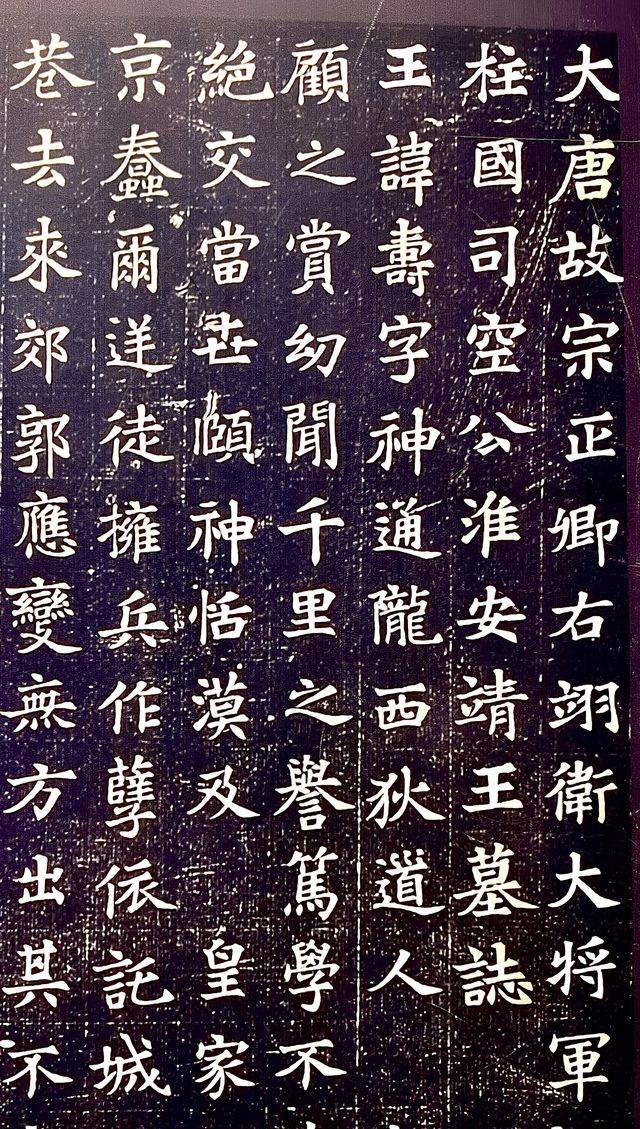 大唐故宗正卿右翊衛大将軍
柱國司空公淮安靖王墓誌
王諱壽字神通隴西狄道人
顧之賞幼聞千里之譽篤學不
絶交當世頤神恬漠及 皇家
京蠢爾逆徒擁兵作孽依託城
巷去來郊郭應變無方出其不